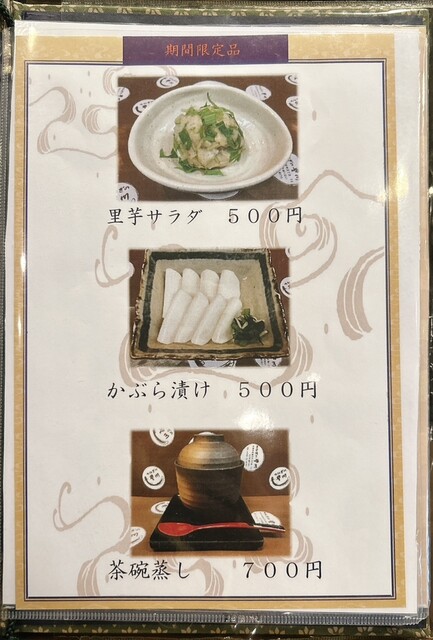 期間限定品
里芋サラダ　５００円
かぶら漬け　５００円
茶碗蒸し　７００円